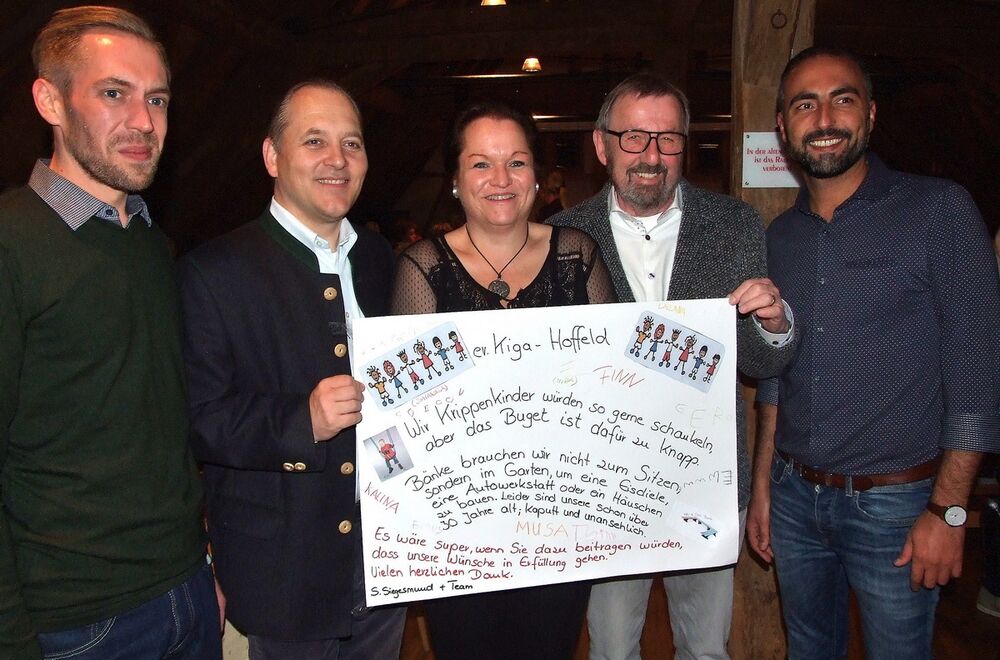 In der alten
ist das Rau
verbot
ev. Kiga - Hoffeld
FINN
Wir Krippenkinder würden so gerne schaukeln,
aber das Buget ist dafür zu knapp.
Bänke brauchen wir nicht zum Sitzen,
sondern im Garten, um eine Eisdiele,
eine Autowerkstatt oder ein Häuschen
zu bauen. Leider sind unsere schon über
30 Jahre alt, kaputt und unansehlich.
KALINA
MUSA
Es wäre super, wenn Sie dazu beitragen würden,
dass unsere Wünsche in Erfüllung gehen.
Vielen herzlichen Dank.
S. Siegesmund + Team